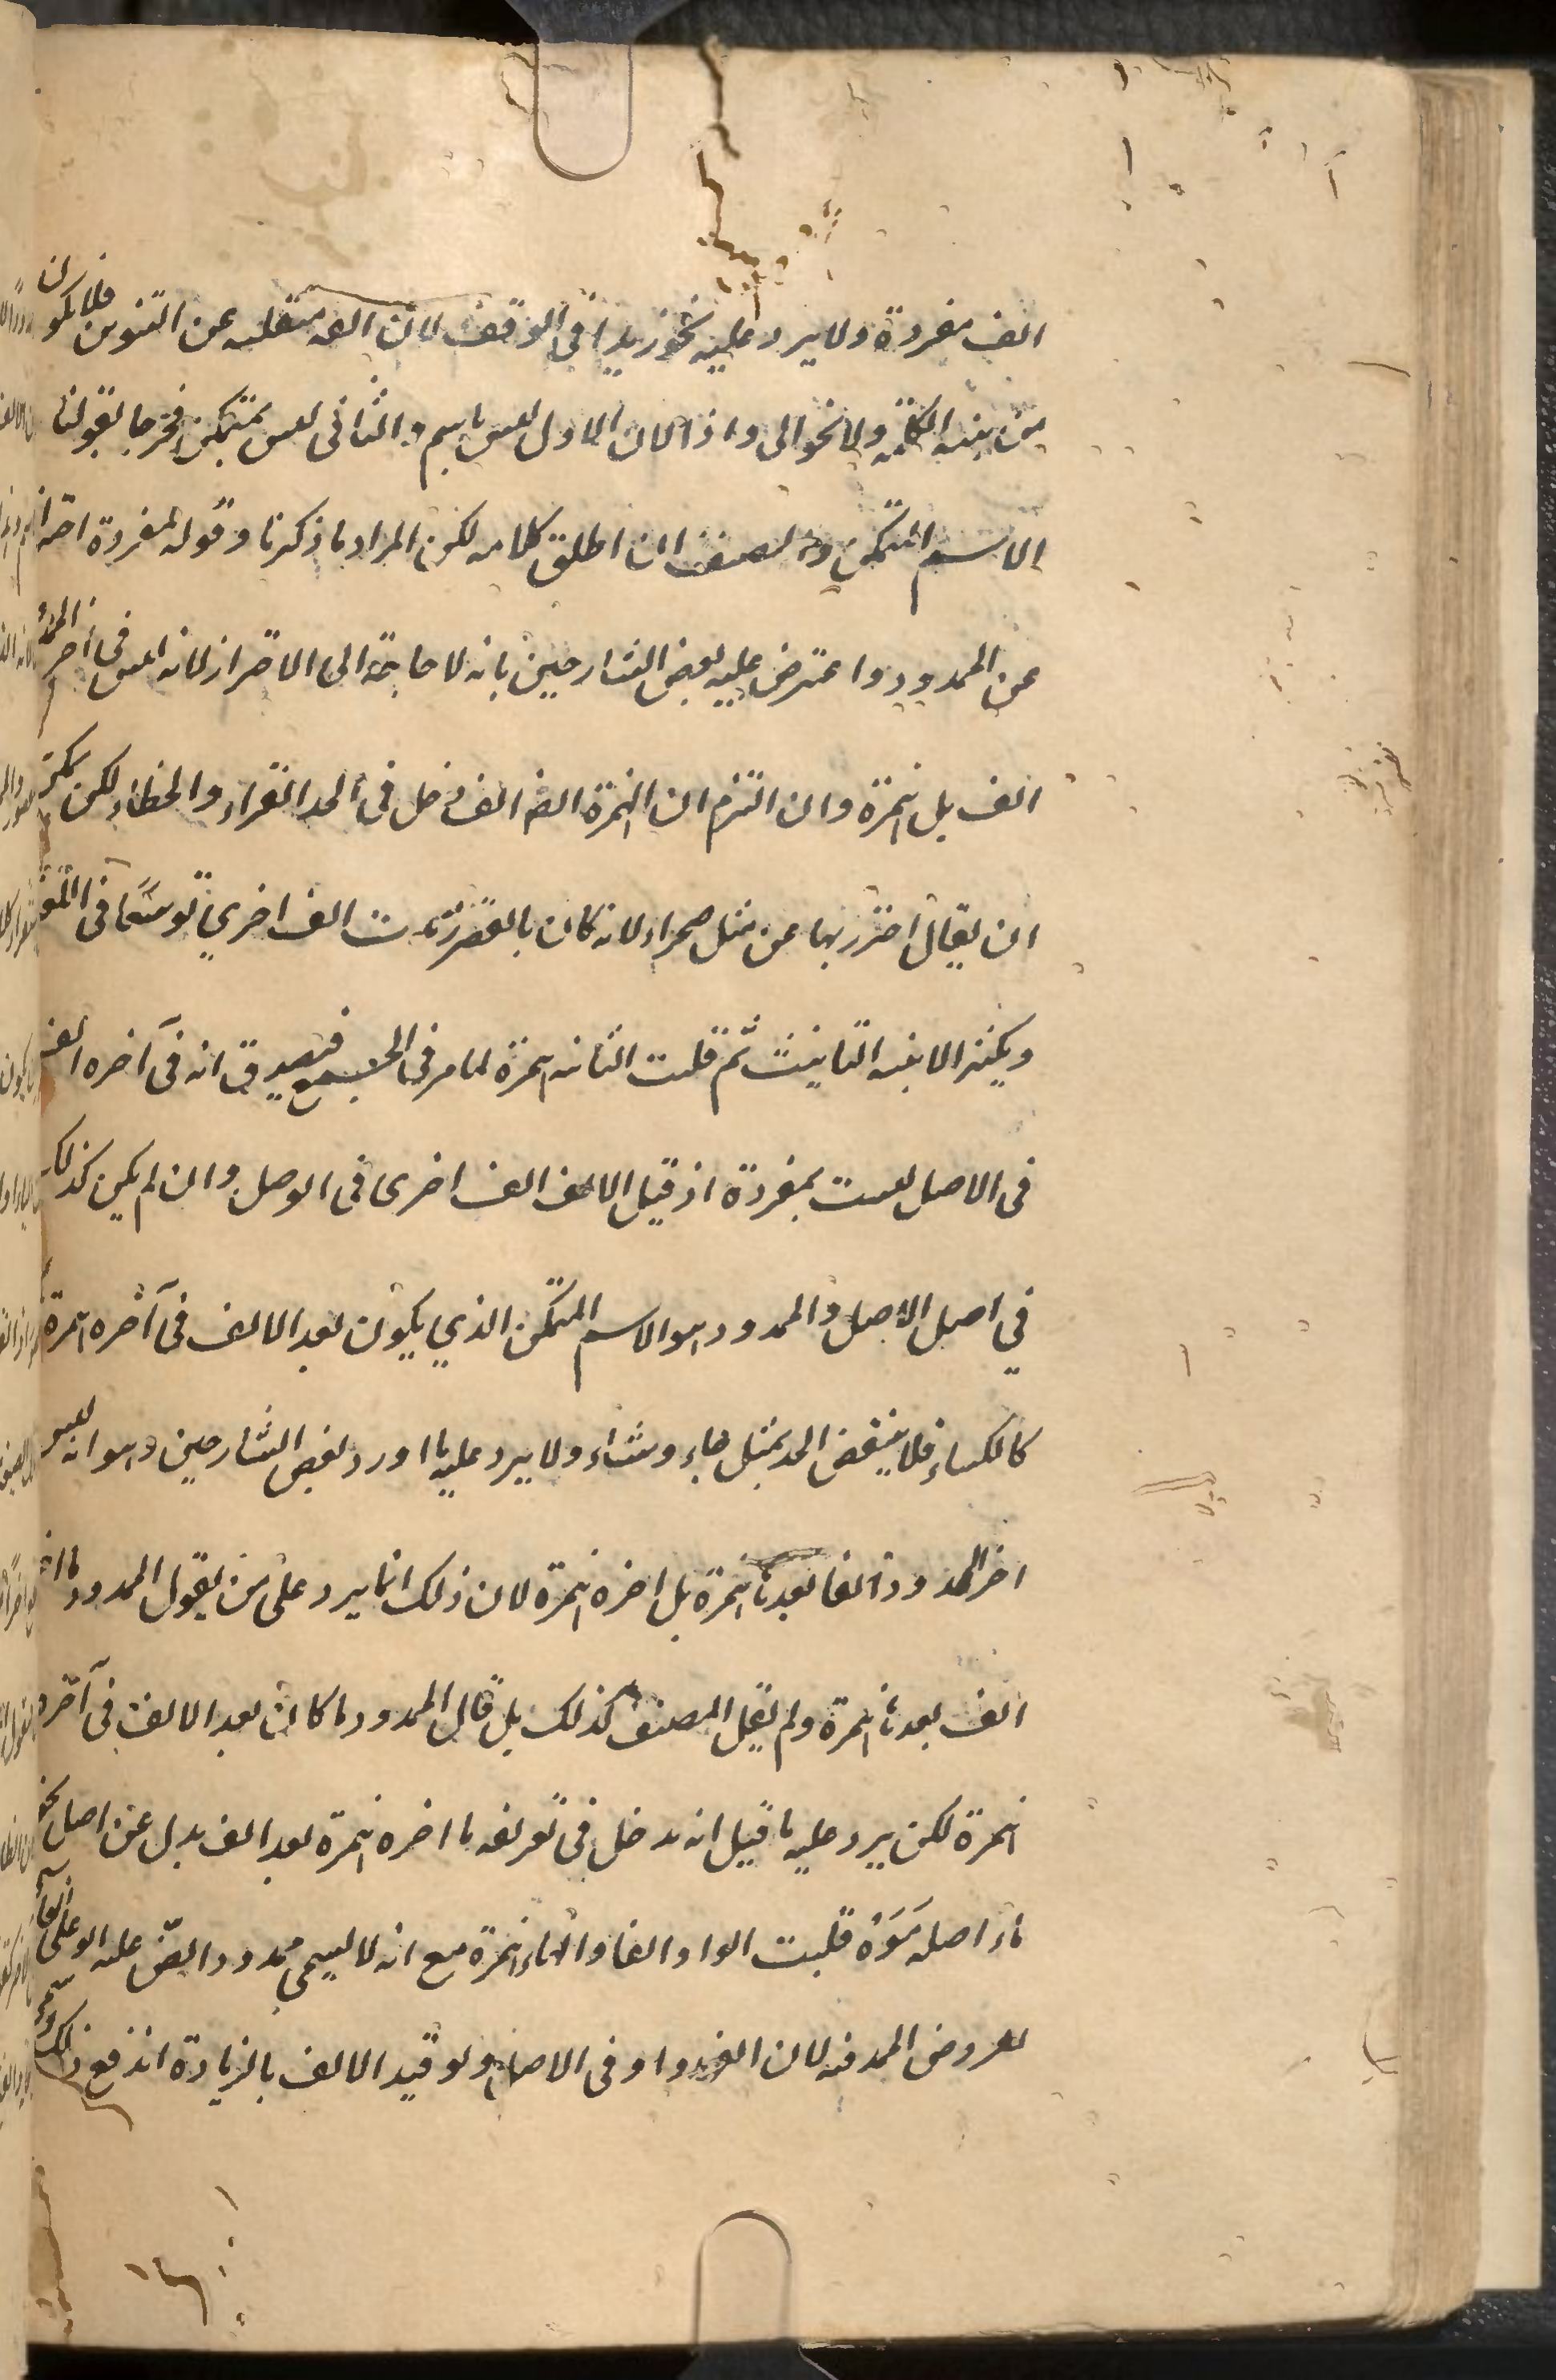 الف مفردة ولا يرد عليه نحو زيدا فى الوقف لان الفه منقلبه عن التنوين فلا يكون
من بنية الكلمة ولا نحو الى واذا لان الاول ليس باسم والثانى ليس بمتمكن فخرجا بقولنا
الاسم المتمكن والمصنف ان اطلق كلامه لكن المراد ما ذكرنا وقوله مفردة احتراز
عن الممدود واعترض عليه بعض الشارحين بانه لا حاجة الى الاحتراز لانه ليس فى آخر
الف بل همزة وان التزم ان الهمزة الف فدخل فى الحد القراء والخطاء لكن يمكن
ان يقال احترز بها عن مثل صحراء لانه كان بالقصر زيدت الف اخري توسعًا فى اللغة
ويكثر الابنية التانيث ثم قلبت الثانيه همزة لما مر فى الجمع فيصدق انه فى آخره الف
فى الاصل ليست بمفردة اذ قبل الالف الف اخرى فى الوصل وان لم يكن كذلك
في اصل الاصل والممدود هو الاسم المتمكن الذي يكون بعد الالف فى آخره همزة
كالكساء فلا ينتقض الحد بمثل جاء وشاء ولا يرد عليه ما اورد بعض الشارحين وهو انه ليس
اخر الممدود الفا بعدها همزة بل اخره همزة لان ذلك انما يرد على من يقول الممدود ما اخره
الف بعدها همزة ولم يقل المصنف كذلك بل قال الممدود ما كان بعد الالف فى آخره
همزة لكن يرد عليه ما قيل انه يدخل فى تعريفه ما اخره همزة بعد الف بدل عن اصل نحو
ماء اصله مَوَهٌ قلبت الواو الفا والهاء همزة مع انه لا يسمي ممدودا نص عليه ابو على
لعروض المد فيه لان الفه واو فى الاصل ولو قيد الالف بالزيادة اندفع ذلك